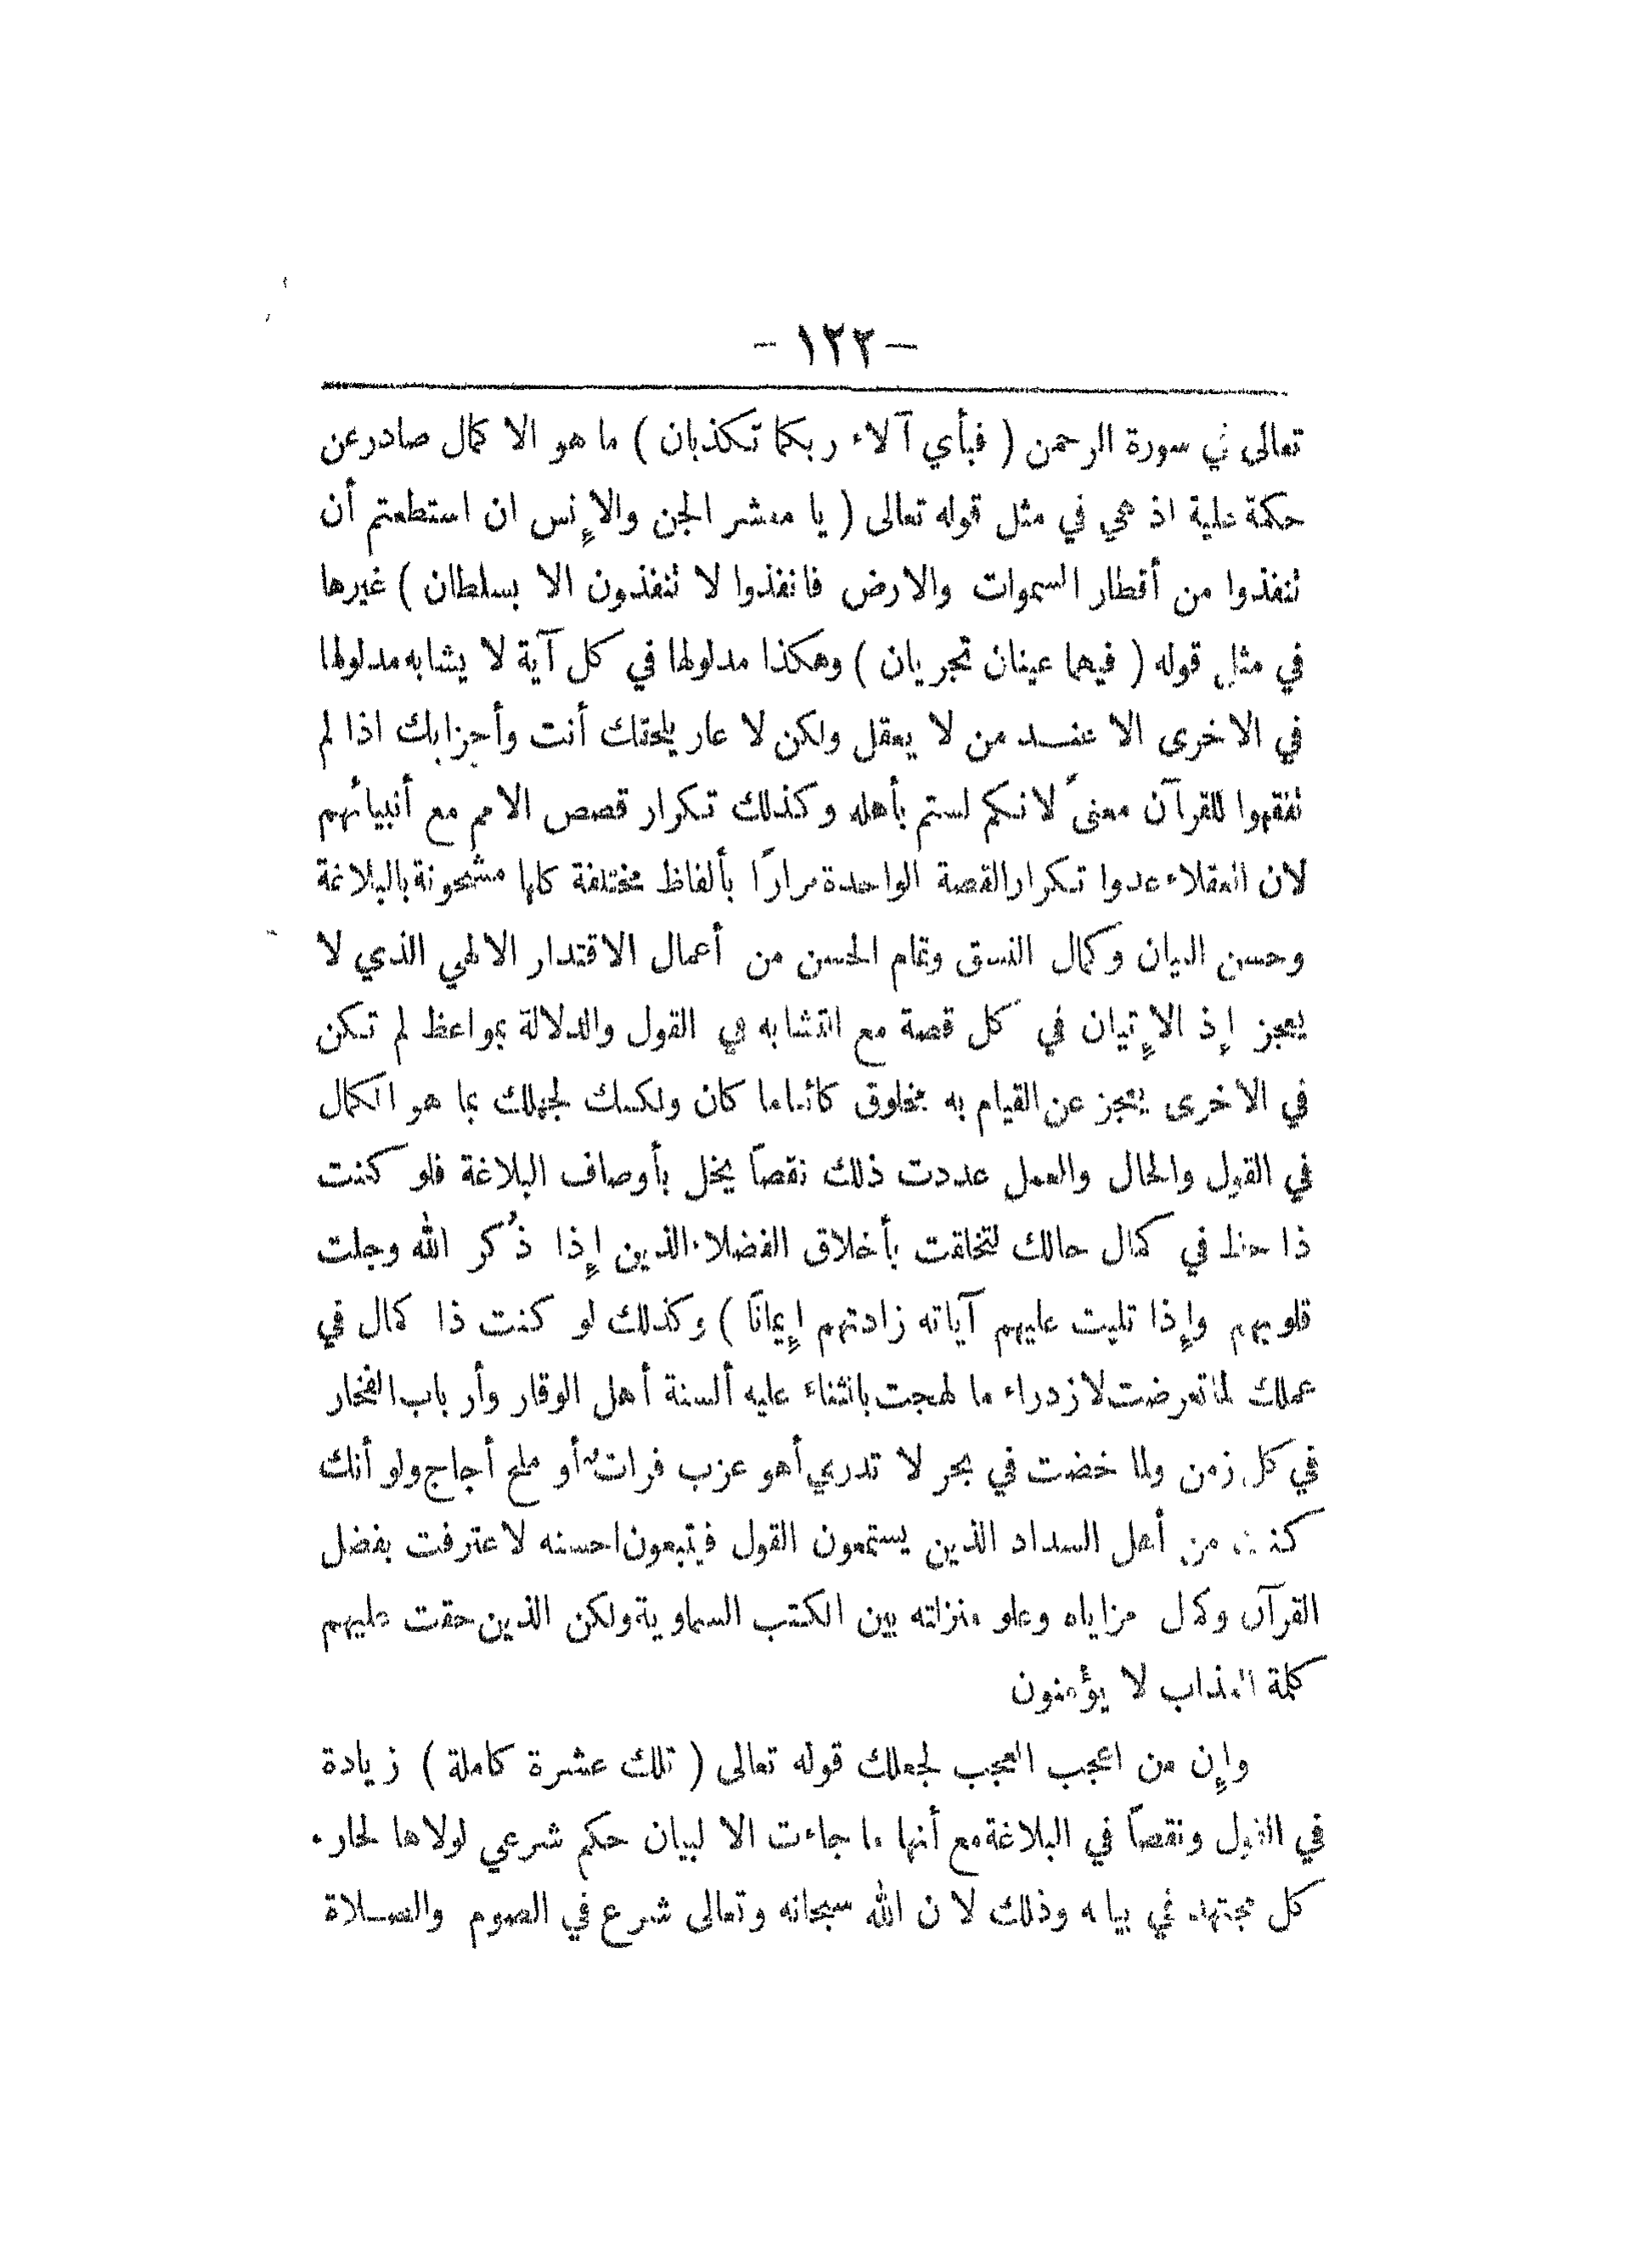 — ١٢٢ —
تعالى في سورة الرحمن ( فبأي آلاء ربكما تكذبان ) ما هو الا كمال صادر عن
حكمة علية اذ هي في مثل قوله تعالى ( يا معشر الجن والإنس ان استطعتم أن
تنفذوا من أقطار السموات والارض فانفذوا لا تنفذون الا بسلطان ) غيرها
في مثل قوله ( فيهما عينان تجريان ) وهكذا مدلولها في كل آية لا يشابه مدلولها
في الاخرى الا عنـد من لا يعقل ولكن لا عار يلحقك أنت وأحزابك اذا لم
تفقهوا للقرآن معنىً لانكم لستم بأهله وكذلك تكرار قصص الامم مع أنبيائهم
لان العقلاء عدوا تكرار القصة الواحدة مرارًا بألفاظ مختلفة كلها مشحونة بالبلاغة
وحسن البيان وكمال النسق وتمام الحسن من أعمال الاقتدار الالهي الذي لا
يعجز إذ الإتيان في كل قصة مع التشابه في القول والدلالة بمواعظ لم تكن
في الاخرى يعجز عن القيام به مخلوق كائنا ما كان ولكنك لجهلك بما هو الكمال
في القول والحال والعمل عددت ذلك نقصاً يخل بأوصاف البلاغة فلو كنت
ذا حظ في كمال حالك لتخلقت بأخلاق الفضلاء الذين إذا ذُكر الله وجلت
قلوبهم وإذا تليت عليهم آياته زادتهم إيمانًا ) وكذلك لو كنت ذا كمال في
عملك لما تعرضت لازدراء ما لهجت بالثناء عليه ألسنة أهل الوقار وأرباب الفخار
في كل زمن ولما خضت في بحر لا تدري أهو عزب فراتٌ أو ملح أجاج ولو أنك
كنت من أهل السداد الذين يستمعون القول فيتبعون احسنه لاعترفت بفضل
القرآن وكمال مزاياه وعلو منزلته بين الكتب السماوية ولكن الذين حقت عليهم
كلمة العذاب لا يؤمنون
وإن من اعجب العجب لجعلك قوله تعالى ( تلك عشرة كاملة ) زيادة
في القول ونقصاً في البلاغة مع أنها ما جاءت الا لبيان حكم شرعي لولاها لحار
كل مجتهد في بيانه وذلك لان الله سبحانه وتعالى شرع في الصوم والصـلاة